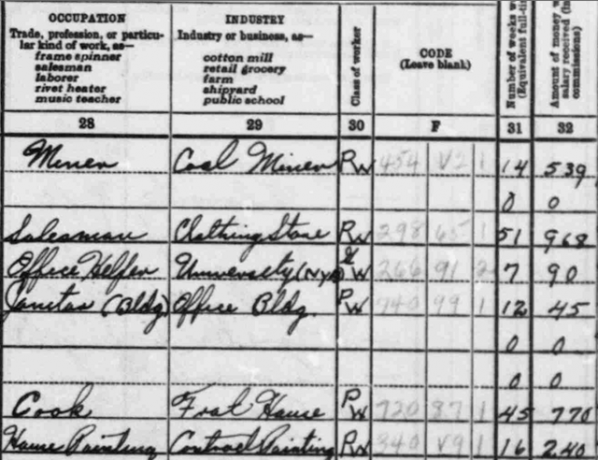 OCCUPATION
Trade, profession, or particu-
lar kind of work, as—
frame spinner
salesman
laborer
rivet heater
music teacher
INDUSTRY
Industry or business, as—
cotton mill
retail grocery
farm
shipyard
public school
Class of worker
CODE
(Leave blank)
Number of weeks
(Equivalent full-ti
Amount of money
salary received (In
commissions)
28 29 30 F 31 32
Miner Coal Miner PW 454 V2 1 14 539
0 0
Salesman Clothing Store PW 298 65 1 51 968
Office Helper University (NYA) GW 266 91 2 7 90
Janitor (Bldg) Office Bldg. PW 740 99 1 12 45
0 0
0 0
Cook Frat House PW 720 87 1 45 770
House Painting Contract Painting PW 340 V9 1 16 240